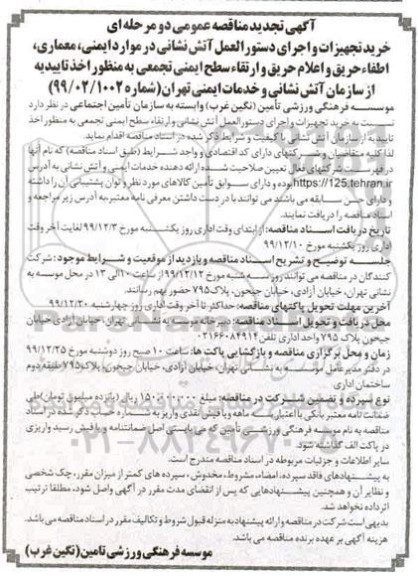 آگهی تجدید مناقصه عمومی دو مرحله ای
خرید تجهیزات و اجرای دستورالعمل آتش نشانی در موارد ایمنی، معماری،
اطفاء حریق و اعلام حریق و ارتقاء سطح ایمنی تجمعی به منظور اخذ تاییدیه
از سازمان آتش نشانی و خدمات ایمنی تهران (شماره ۹۹/۰۲/۱۰۰۲)
موسسه فرهنگی ورزشی تأمین (نگین غرب) وابسته به سازمان تأمین اجتماعی در نظر دارد
نسبت به خرید تجهیزات و اجرای دستورالعمل آتش نشانی و ارتقاء سطح ایمنی تجمعی به منظور اخذ
تاییدیه از سازمان آتش نشانی با کیفیت و شرایط ذکر شده در اسناد مناقصه اقدام نماید.
لذا کلیه متقاضیان و شرکتهای دارای کد اقتصادی و واجد شرایط (طبق اسناد مناقصه) که نام آنها
در فهرست شرکتهای فعال تعیین صلاحیت شده ارائه دهنده خدمات ایمنی و آتش نشانی به آدرس
https://125.tehran.ir بوده و دارای سوابق تأمین کالاهای مورد نظر و توان پشتیبانی آن را داشته
و دارای حسن سابقه می باشند می توانند با در دست داشتن معرفی نامه معتبر، به آدرس زیر مراجعه و
اسناد مناقصه را دریافت نمایند.
تاریخ دریافت اسناد مناقصه: از ابتدای وقت اداری روز یکشنبه مورخ ۹۹/۱۲/۳ لغایت آخر وقت
اداری روز یکشنبه مورخ ۹۹/۱۲/۱۰
جلسه توضیح و تشریح اسناد مناقصه و بازدید از موقعیت و شرایط موجود: شرکت
کنندگان در مناقصه می توانند روز سه شنبه مورخ ۹۹/۱۲/۱۲ از ساعت ۱۰ الی ۱۳ در محل موسسه به
نشانی تهران، خیابان آزادی، خیابان جیحون، پلاک ۷۹۵ حضور بهم رسانند.
آخرین مهلت تحویل پاکتهای مناقصه: حداکثر تا آخر وقت اداری روز چهارشنبه ۹۹/۱۲/۲۰
محل دریافت و تحویل اسناد مناقصه: دبیرخانه موسسه به نشانی تهران، خیابان آزادی خیابان
جیحون پلاک ۷۹۵ واحد اداری تلفن ۰۲۱۶۶۰۸۴۹۱۴
زمان و محل برگزاری مناقصه و بازگشایی پاکت ها: ساعت ۱۰ صبح روز دوشنبه مورخ ۹۹/۱۲/۲۵
در دفتر مدیرعامل موسسه به نشانی تهران، خیابان آزادی، خیابان جیحون، پلاک ۷۹۵ طبقه دوم
ساختمان اداری
نوع سپرده و تضمین شرکت در مناقصه: مبلغ ریال (پانزده میلیون تومان) طی
ضمانت نامه معتبر بانکی با اعتبار سه ماهه و یا فیش نقدی واریز به شماره حساب ذکر شده در اسناد
مناقصه به نام موسسه فرهنگی ورزشی تأمین که می بایستی اصل ضمانتنامه و یا فیش رسید واریزی
در پاکت الف گذاشته شود.
سایر اطلاعات و جزئیات مربوطه در اسناد مناقصه مندرج است.
به پیشنهادهای فاقد سپرده، امضاء، مشروط، مخدوش، سپرده های کمتر از میزان مقرر، چک شخصی
و نظایر آن و همچنین پیشنهادهایی که پس از انقضای مدت مقرر در آگهی واصل شود، مطلقا ترتیب
اثر داده نخواهد شد.
بدیهی است شرکت در مناقصه و ارائه پیشنهاد به منزله قبول شروط و تکالیف مقرر در اسناد مناقصه می باشد.
هزینه آگهی بر عهده برنده مناقصه می باشد.
موسسه فرهنگی ورزشی تامین (نگین غرب)